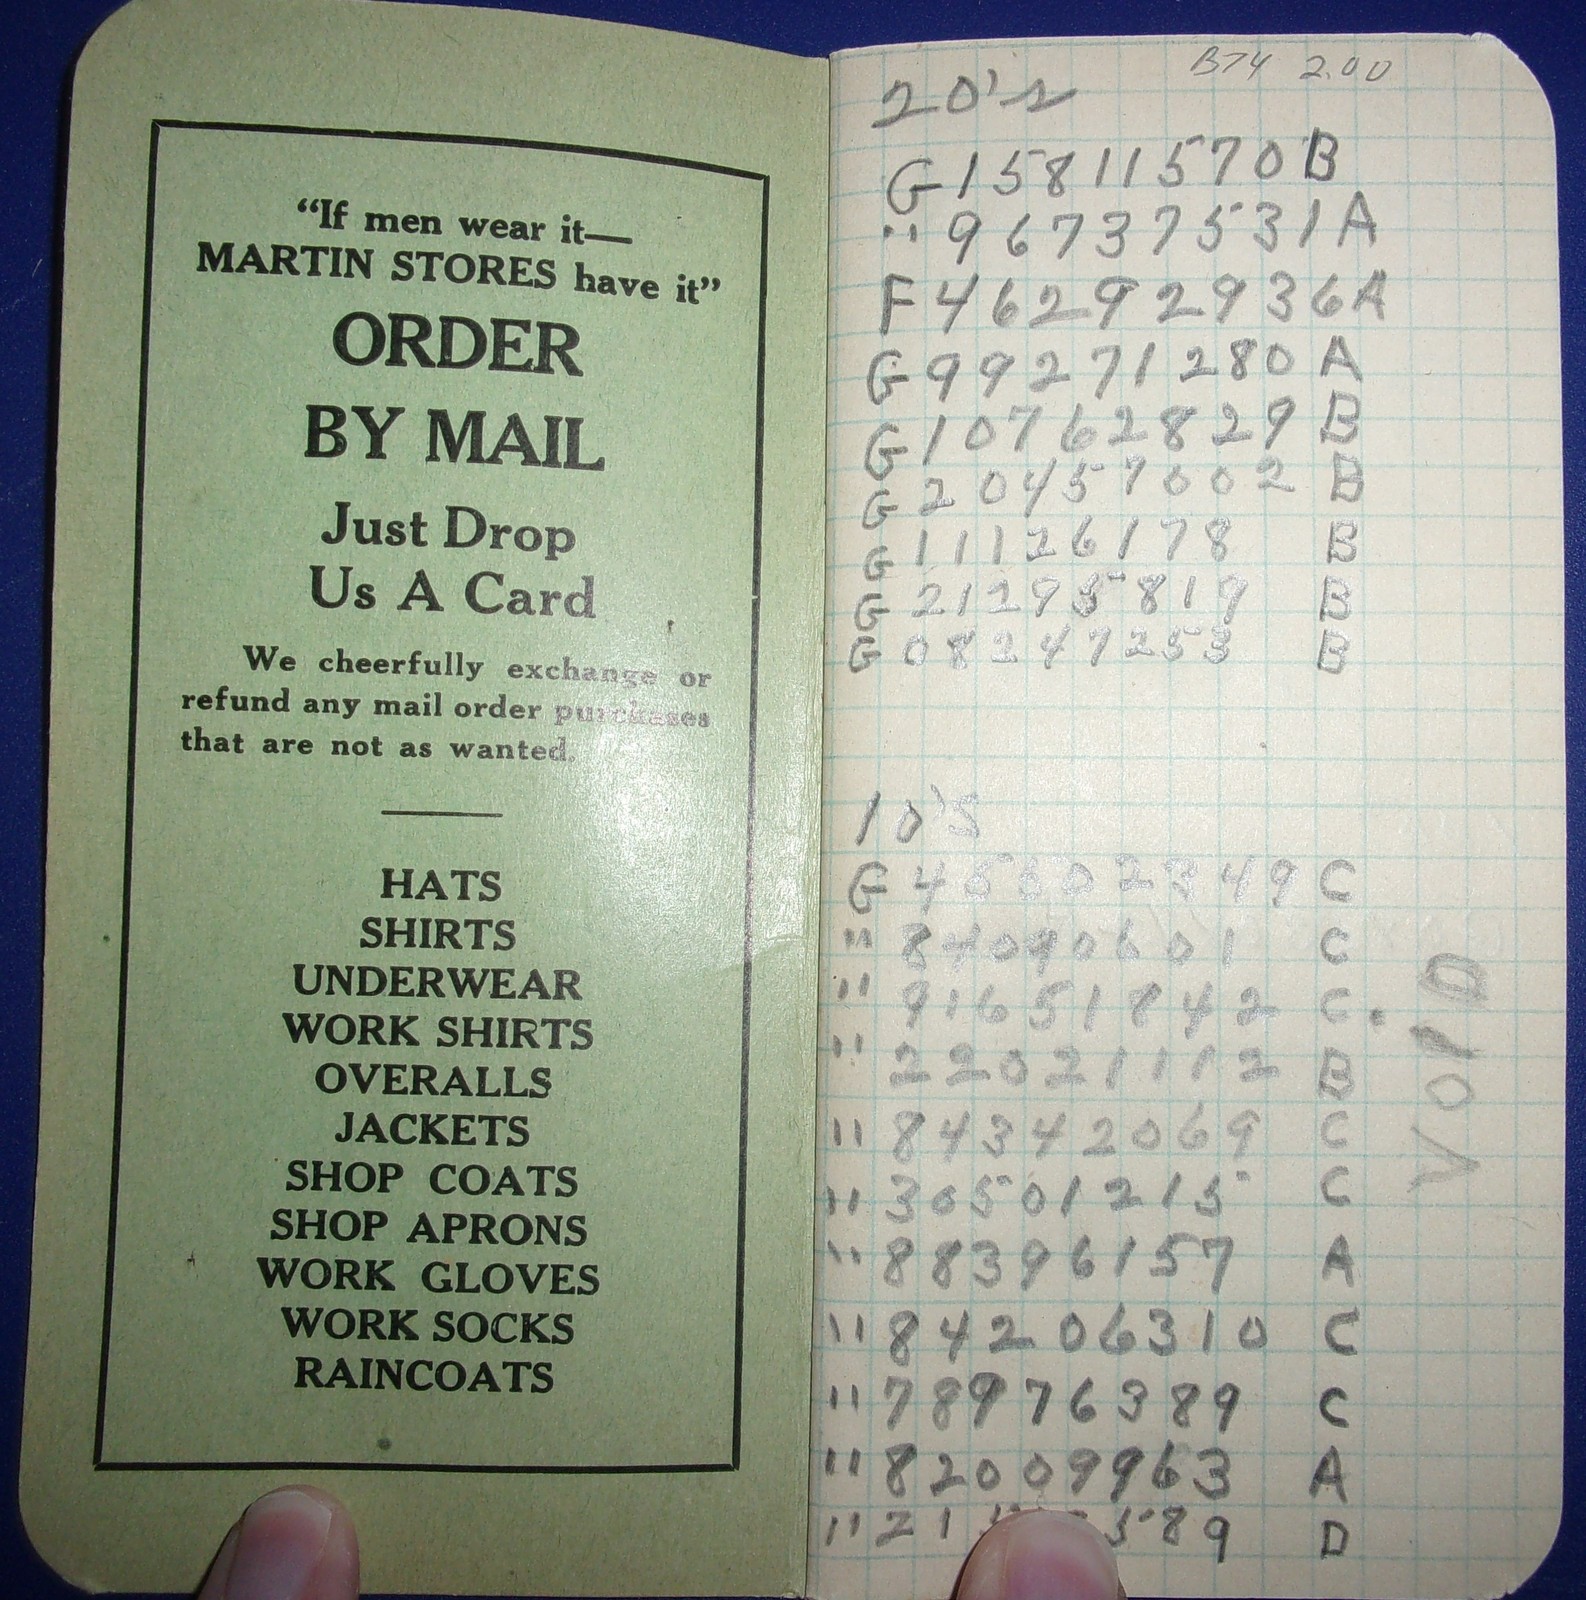 "If men wear it—
MARTIN STORES have it"
ORDER
BY MAIL
Just Drop
Us A Card
We cheerfully exchange or
refund any mail order purchases
that are not as wanted.
HATS
SHIRTS
UNDERWEAR
WORK SHIRTS
OVERALLS
JACKETS
SHOP COATS
SHOP APRONS
WORK GLOVES
WORK SOCKS
RAINCOATS
B74 2.00
20's
G 15811570 B
" 96737531 A
F 46292936 A
G 99271280 A
G 10762829 B
G 20457002 B
G 11126178 B
G 21295819 B
G 08247253 B
10's
G C
" 84090601 C
" 91651842 C.
" 22021112 B
" 84342069 C
" 30501215 C
" 88396157 A
" 84206310 C
" 78976389 C
" 82009963 A
" D
VOID